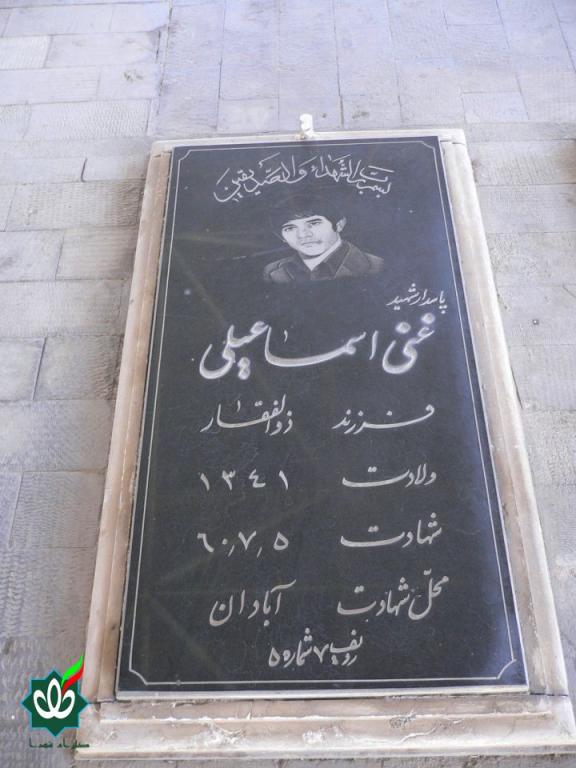 بسم رب الشهداء والصدیقین
پاسدار شهید
غنی اسماعیلی
فرزند ذوالفقار
ولادت ۱۳۴۱
شهادت ۶۰،۷،۵
محل شهادت آبادان
ردیف ۷ شماره ۵